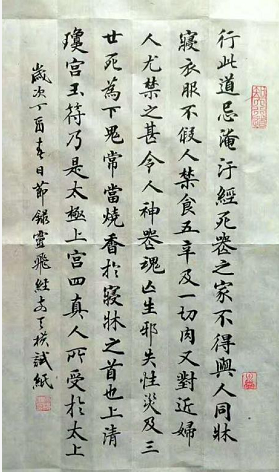 行此道忌淹汙經死䘮之家不得與人同牀
寢衣服不假人禁食五辛及一切肉又對近婦
人尤禁之甚令人神䘮魂亡生邪失性災及三
世死為下鬼常當燒香扵寢牀之首也上清
瓊宮玉符乃是太極上宮四真人所受扵太上
歲次丁酉春日節錄靈飛經 試紙